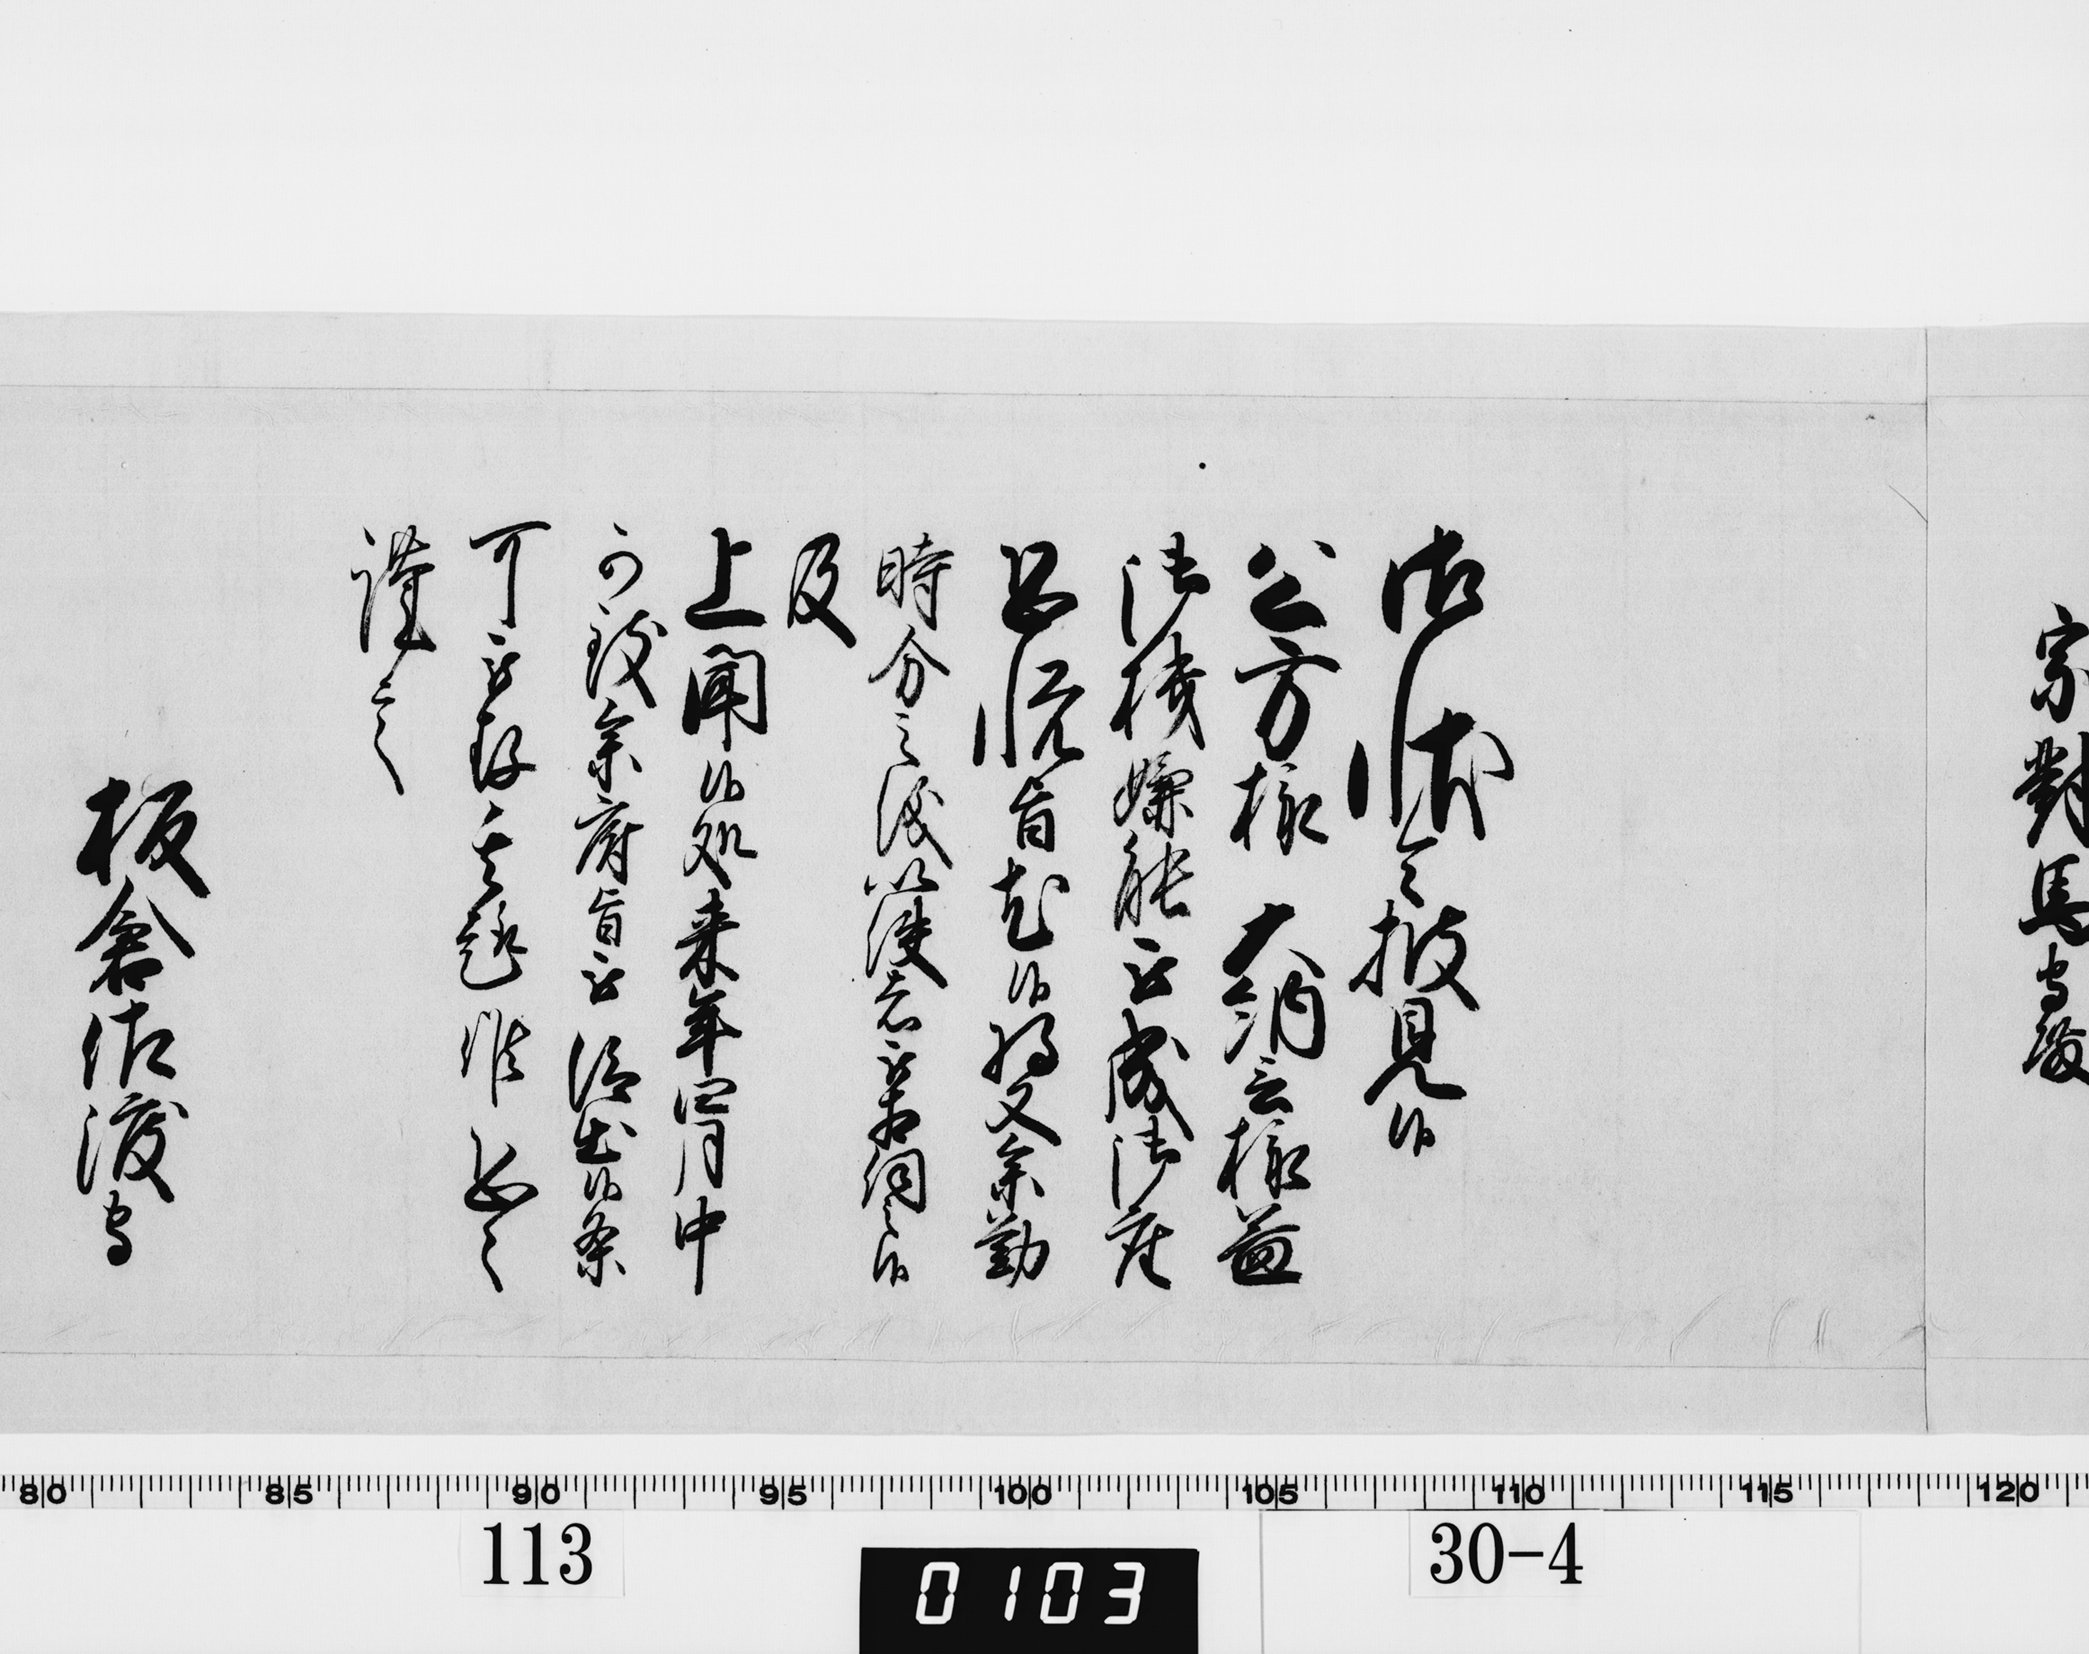 宗對馬守殿
御状令披見候
公方様 大納言様益
御機嫌能被成御座
恐悦旨尤候将又参勤
時分之儀以使者被相伺之候
及
上聞候処来年四月中
可致参府旨被 仰出候条
可被存其趣候恐々
謹言
板倉佐渡守
80 85 90 95 100 105 110 115 120
113
0103
30-4